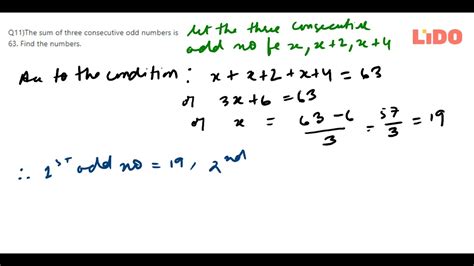 Q11)The sum of three consecutive odd numbers is
63. Find the numbers.
let the three consecutive
odd no be x, x+2, x+4
LiDO
Acc to the condition : x + x+2 + x+4 = 63
or 3x+6 = 63
or x = (63-6)/3 = 57/3 = 19
∴ 1st odd no = 19, 2nd